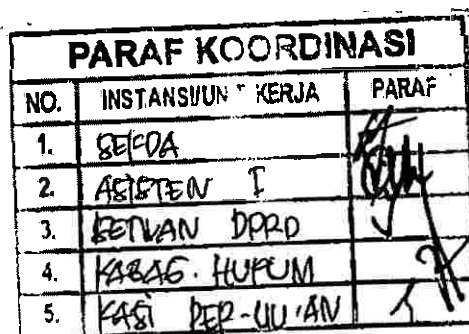 PARAF KOORDINASI
NO. INSTANSI/UNIT KERJA PARAF
1. SEKDA
2. ASISTEN I
3. SETWAN DPRD
4. KABAG. HUKUM
5. KASI PER-UU'AN